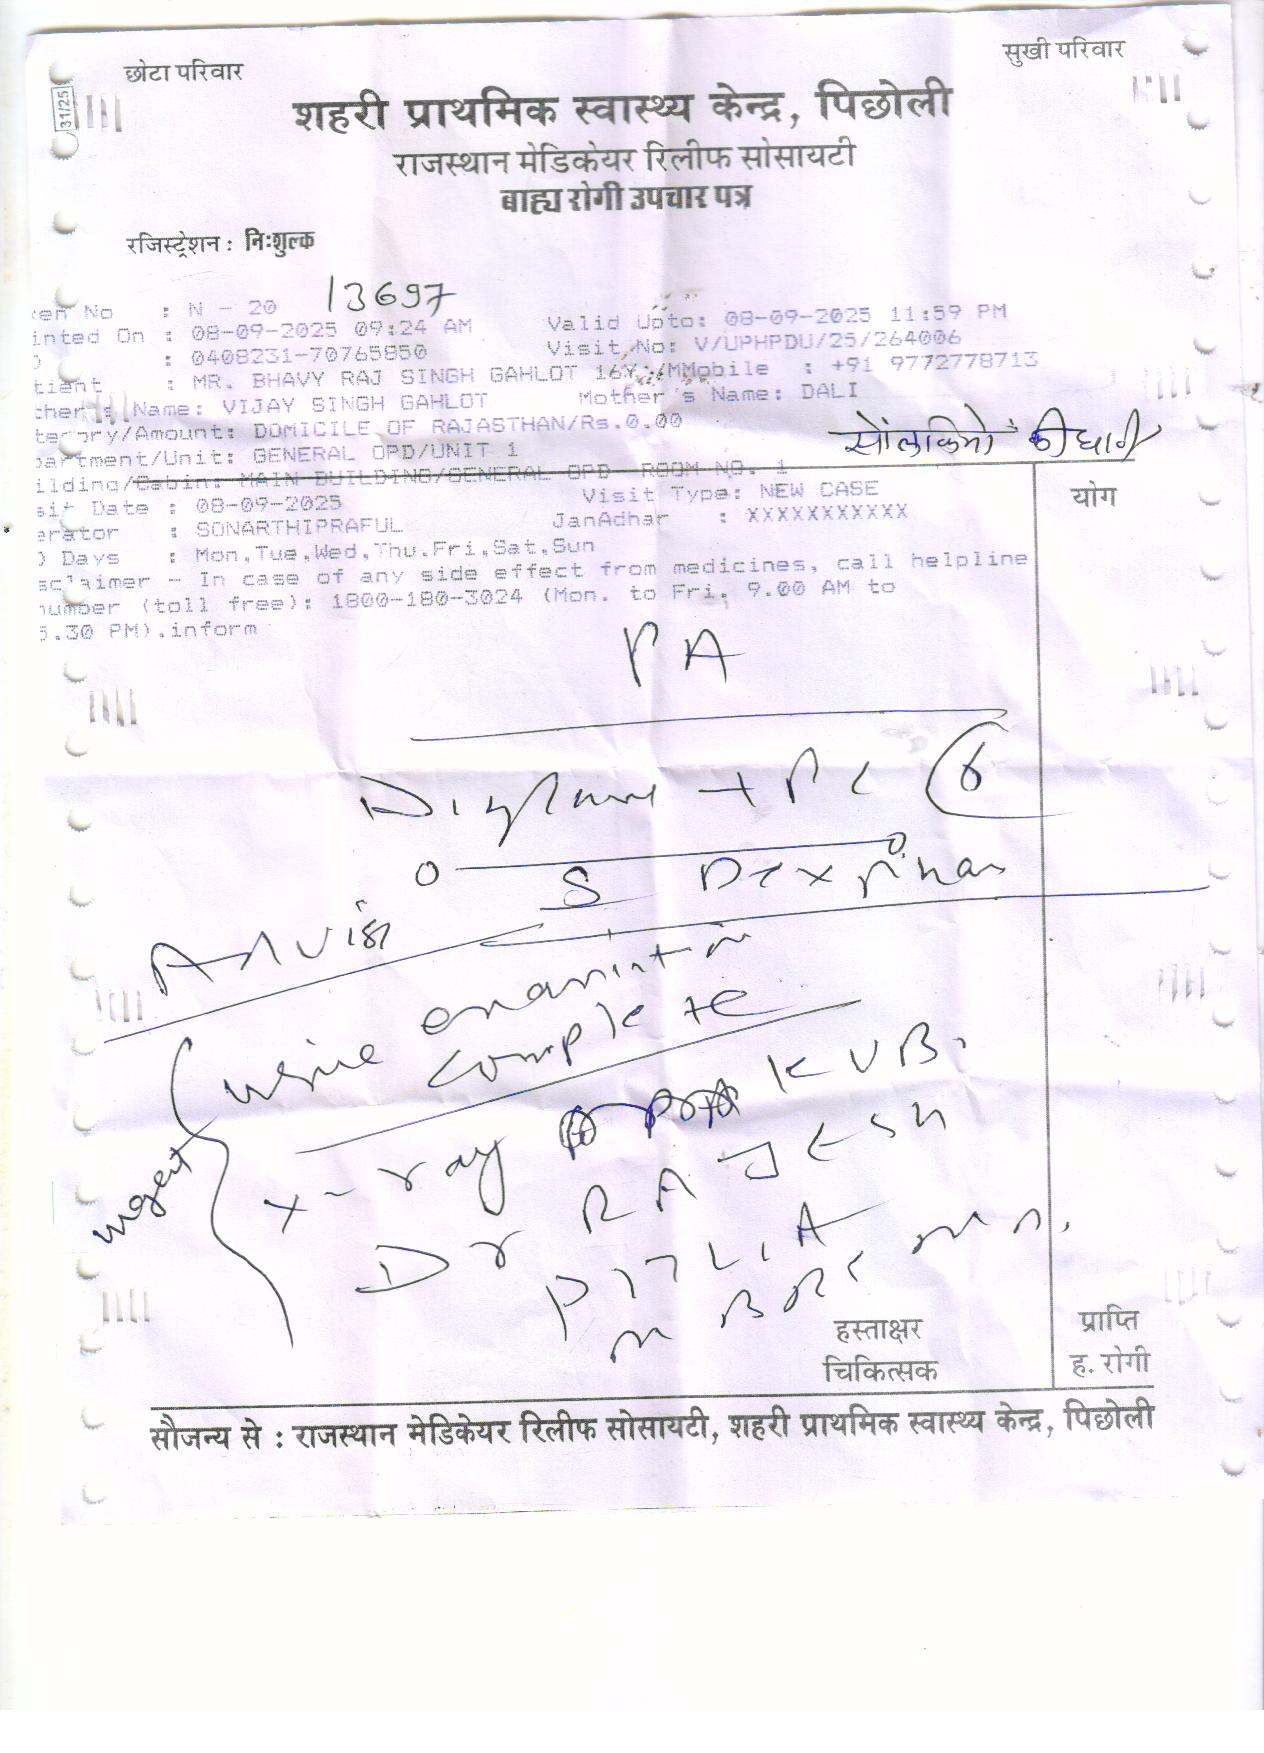 छोटा परिवार
सुखी परिवार
31/25
शहरी प्राथमिक स्वास्थ्य केन्द्र, पिछोली
राजस्थान मेडिकेयर रिलीफ सोसायटी
बाह्य रोगी उपचार पत्र
रजिस्ट्रेशन : निःशुल्क
13697
ken No : N - 20
inted On : 08-09-2025 09:24 AM Valid Upto: 08-09-2025 11:59 PM
: 0408231-70765850 Visit No: V/UPHPDU/25/264006
tient : MR. BHAVY RAJ SINGH GAHLOT 16Y /M Mobile : +91 9772778713
ther's Name: VIJAY SINGH GAHLOT Mother's Name: DALI
tegory/Amount: DOMICILE OF RAJASTHAN/Rs.0.00
partment/Unit: GENERAL OPD/UNIT 1
ilding/Cabin: MAIN BUILDING/GENERAL OPD ROOM NO. 1
sit Date : 08-09-2025 Visit Type: NEW CASE
erator : SONARTHIPRAFUL JanAdhar : XXXXXXXXXXX
) Days : Mon,Tue,Wed,Thu,Fri,Sat,Sun
sclaimer - In case of any side effect from medicines, call helpline
number (toll free): 1800-180-3024 (Mon. to Fri. 9.00 AM to
5.30 PM).inform
योग
PA
6
Advise
urine
complete
urgent
x-ray KUB.
Dr RAJESH
हस्ताक्षर
चिकित्सक
प्राप्ति
ह. रोगी
सौजन्य से : राजस्थान मेडिकेयर रिलीफ सोसायटी, शहरी प्राथमिक स्वास्थ्य केन्द्र, पिछोली